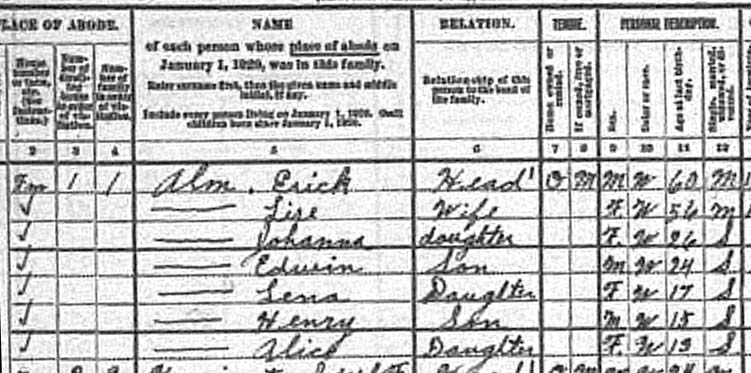 PLACE OF ABODE. NAME RELATION. TENURE. PERSONAL DESCRIPTION.
of each person whose place of abode on
January 1, 1920, was in this family.
Enter surname first, then the given name and middle
initial, if any.
Include every person living on January 1, 1920. Omit
children born since January 1, 1920.
Relationship of this
person to the head of
the family.
Home owned or rented.
If owned, free or mortgaged.
Sex.
Color or race.
Age at last birthday.
2 3 4 5 6 7 8 9 10 11 12
Fm 1 1 Alm, Erick Head O M M W 60 M
✓ —— Lise Wife F W 56 M
✓ —— Johanna daughter F W 26 S
✓ —— Edwin Son M W 24 S
✓ —— Lena Daughter F W 17 S
✓ —— Henry Son M W 15 S
✓ —— Alice Daughter F W 13 S